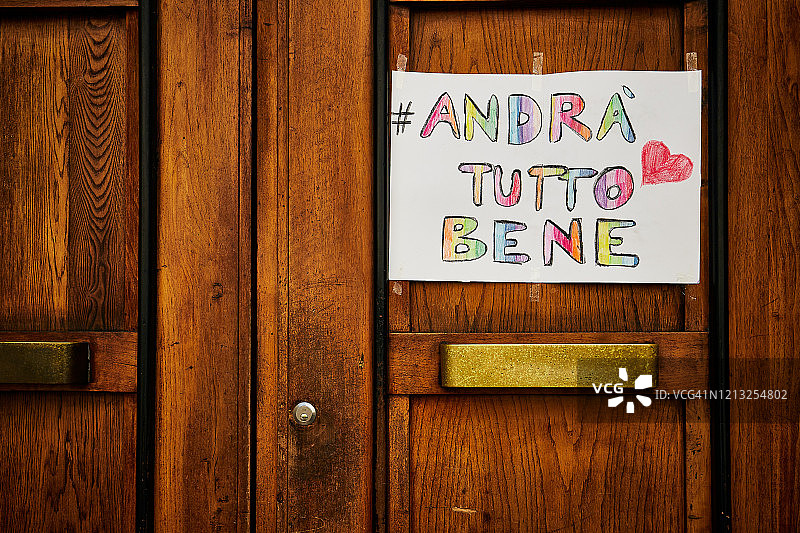 #ANDRÀ
TUTTO
BENE
VCG
ID:VCG41N1213254802